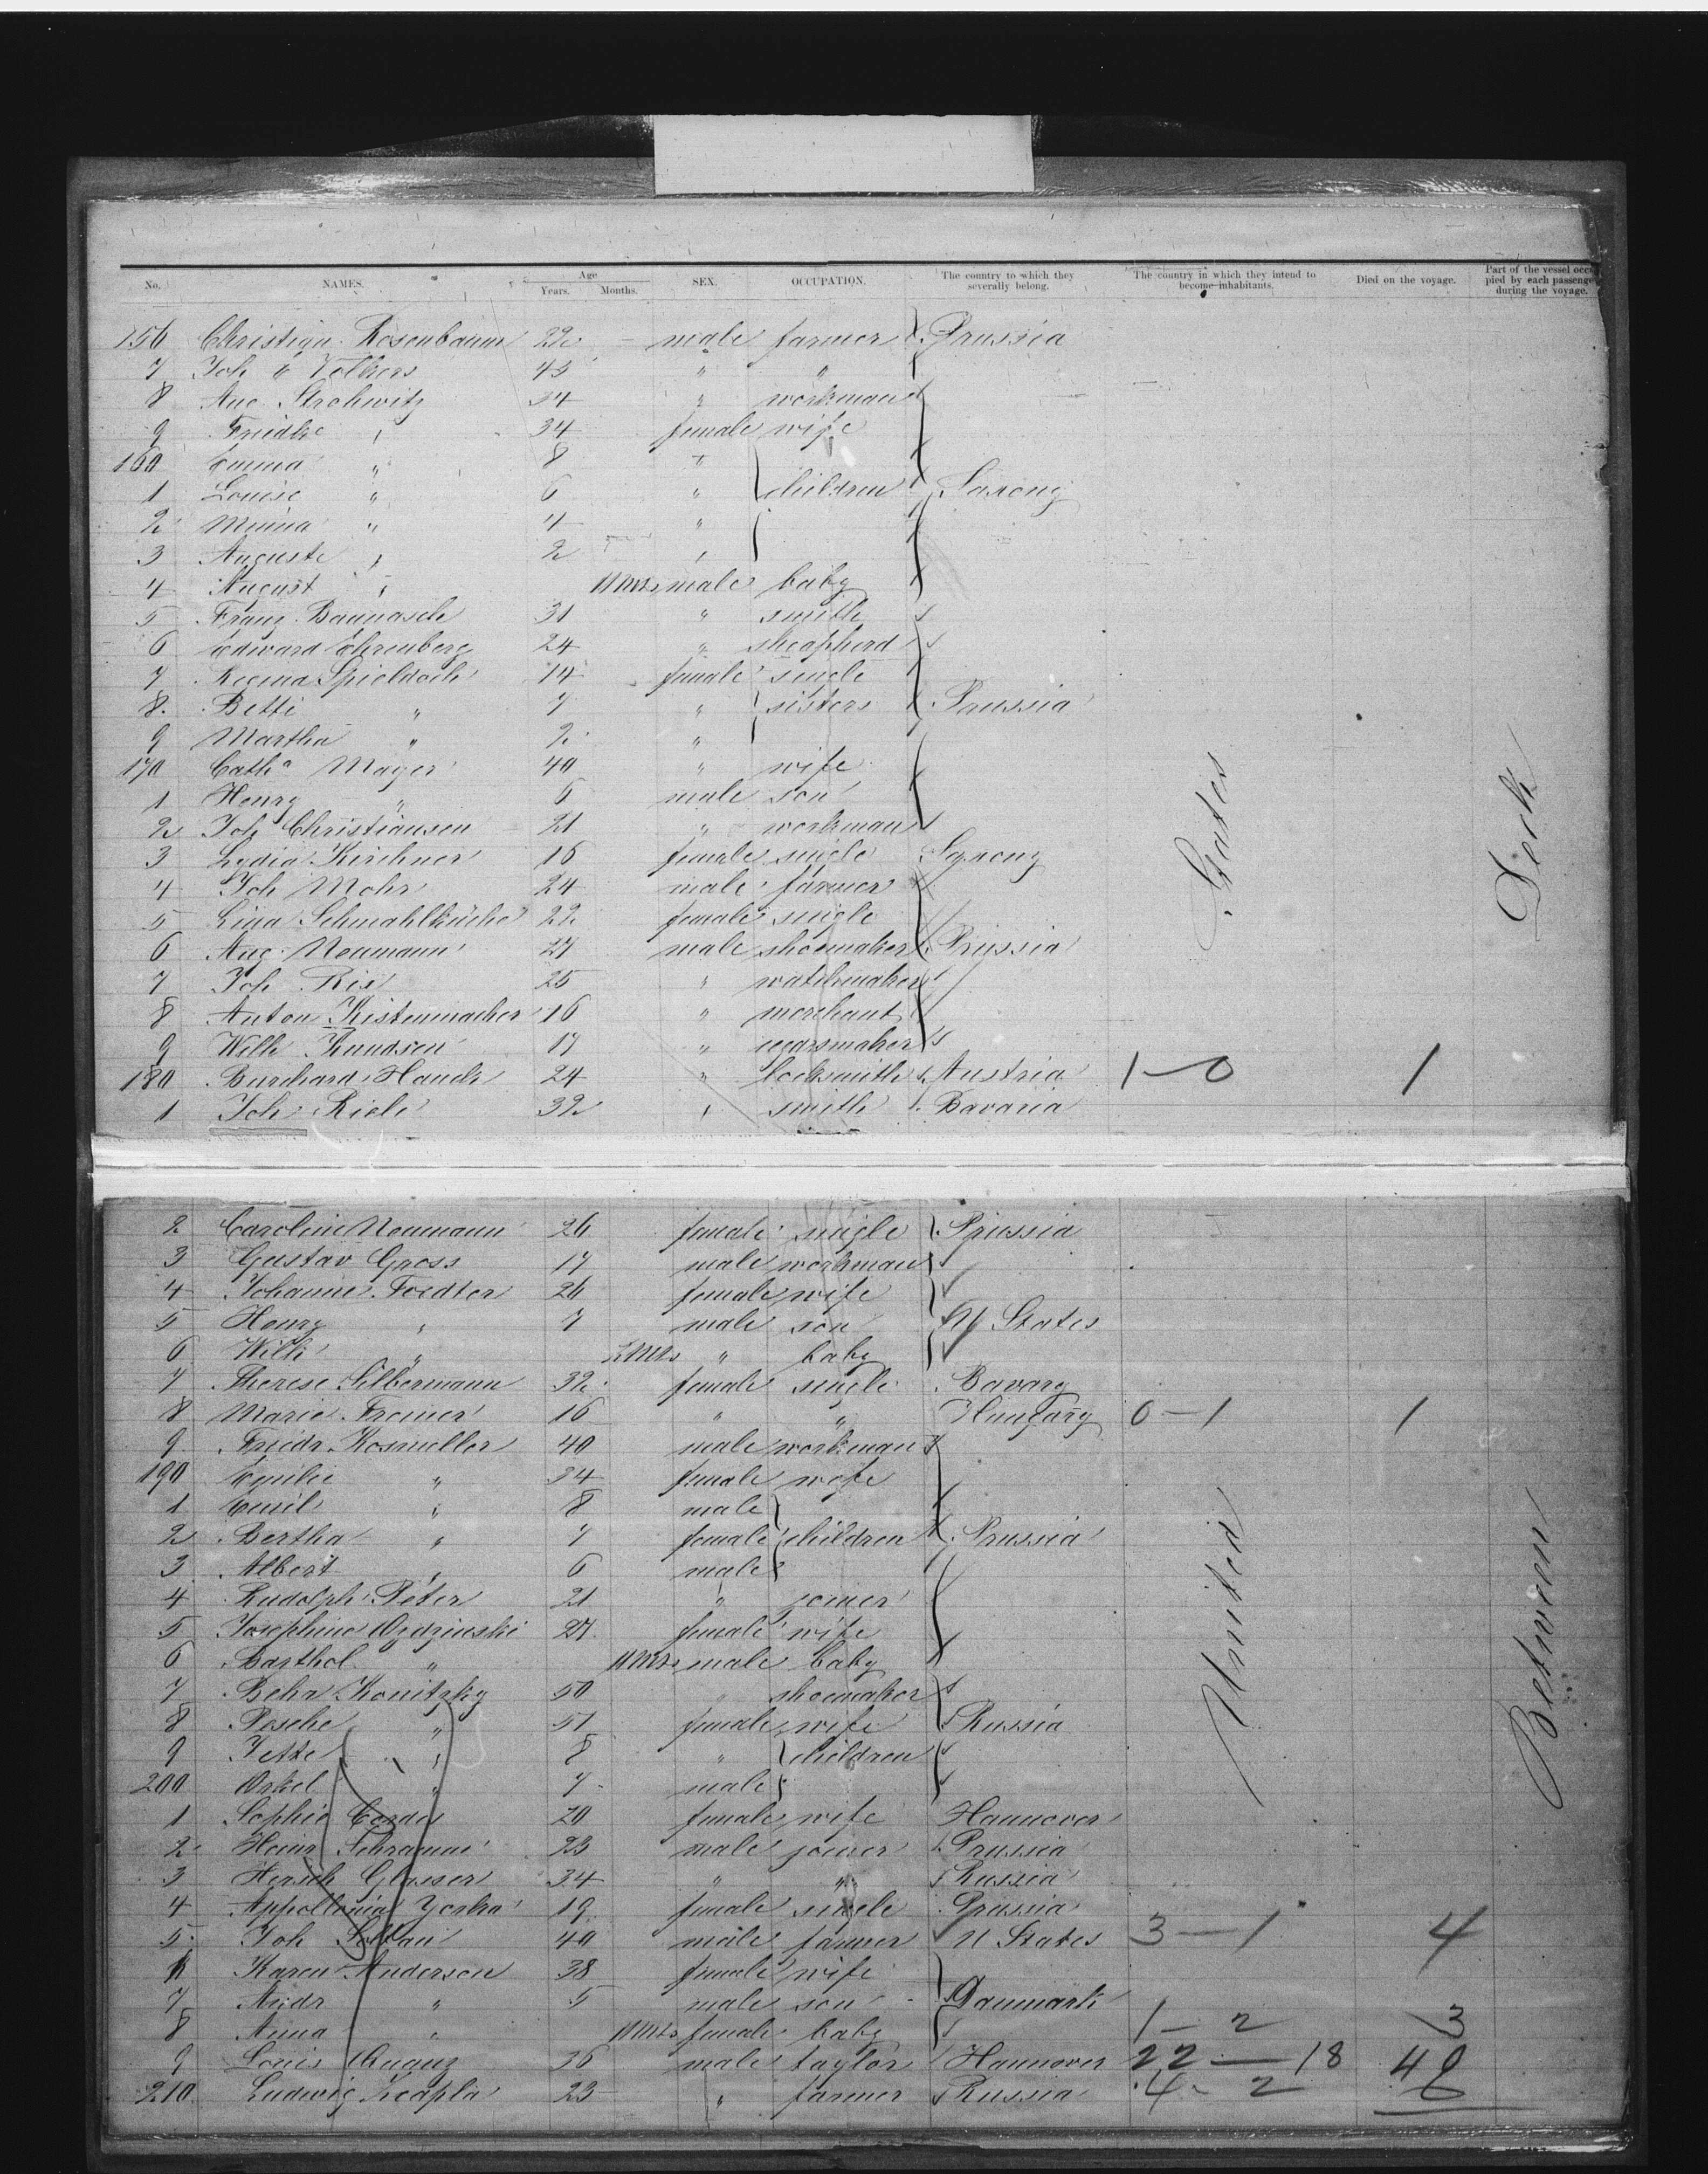 No. NAMES. Age Years. Months. SEX. OCCUPATION. The country to which they severally belong. The country in which they intend to become inhabitants. Died on the voyage. Part of the vessel occupied by each passenger during the voyage.
156 Christian Rosenbaum 22 male farmer Prussia
7 Joh " Volkers 43 " "
8 Aug Strohwitz 34 " workman
9 Friedke " 34 female wife
160 Emma " 8 "
1 Louise " 6 " children Saxony
2 Minna " 4 "
3 Auguste " 2 "
4 August " 11 Mts male baby
5 Franz Baunasch 31 " smith
6 Edward Ehrenberg 24 " sheapherd
7 Regina Spieldoch 14 female single
8 Betti " 7 " sisters Prussia
9 Martha " 2 "
170 Cath^a Mayer 40 " wife
1 Henry " 6 male son
2 Joh Christiansen 21 " workman
3 Lydia Kirchner 16 female single Saxony
4 Joh Mohr 24 male farmer
5 Lina Schmahlküche 22 female single
6 Aug. Neumann 27 male shoemaker Prussia
7 Joh Ris 25 " watchmaker
8 Anton Kistenmacher 16 " merchant
9 Wilh Knudsen 17 " cegarsmaker
180 Burchard Hauck 24 " locksmith Austria 1-0 1
1 Joh Riele 32 " smith Bavaria
2 Caroline Neumann 26 female single Prussia
3 Gustav Gross 17 male workman
4 Johanne Foedter 26 female wife
5 Henry " 7 male son U States
6 Wilh " Mts " baby
7 Therese Silbermann 32 female single Bavary
8 Marie Fremer 16 " " Hungary 0-1 1
9 Friedr Kosmeller 40 male workman
190 Emilie " 34 female wife
1 Emil " 8 male
2 Bertha " 7 female children Prussia
3 Albert " 6 male
4 Rudolph Peter 21 " joiner
5 Josephine Ordzinski 27 female wife
6 Barthol " 11 Mts male baby
7 Behr Konitzky 50 " shoemaker
8 Pesche " 51 female wife Russia
9 Jette " 8 " children
200 Orkel " 7 male
1 Sophie Cordes 20 female wife Hannover
2 Heinr Schramm 23 male joiner Prussia
3 Hersch Glasser 34 " " Russia
4 Appollonia Yorka 19 female single Prussia
5 Joh Soltau 40 male farmer U States 3-1 4
Karen Anderson 38 female wife
7 Andr " 5 male son Danmark
8 Anna " 11 Mts female baby 1-2 3
9 Louis 36 male taylor Hannover 22-18 48
210 Ludwig Keapla 23 " farmer Russia 4-2
United States
Between Deck